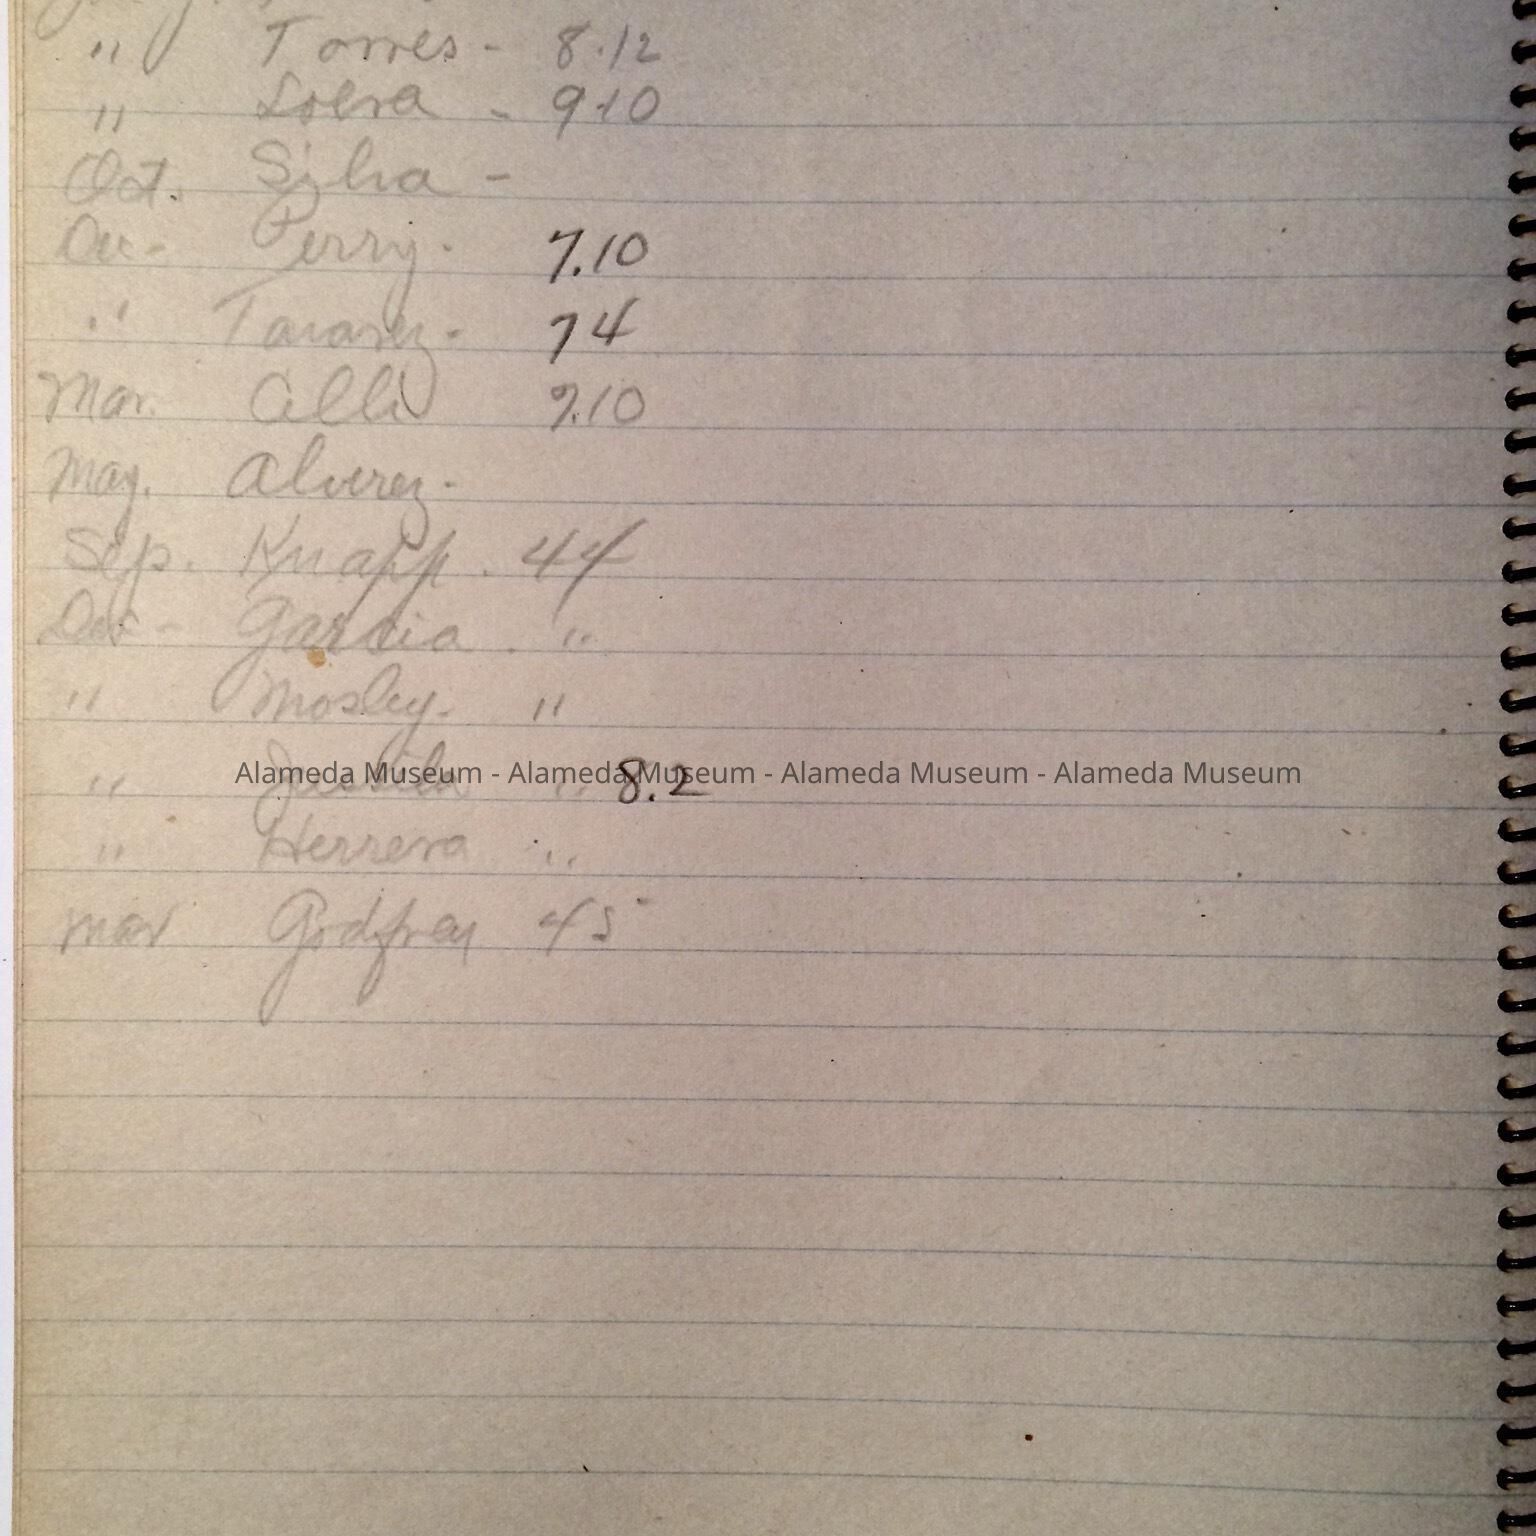 " Torres - 8.12
" - 9.10
Oct. Silva -
Dec - Perry - 7.10
" Tavarez - 7 4
Mar. Alli 9.10
May. Alverez -
Sep. Knapp . 44
Dec - Garcia . "
" Mosley - "
" " 8.2
Alameda Museum - Alameda Museum - Alameda Museum - Alameda Museum
" Herrera "
Mar Godfrey 45